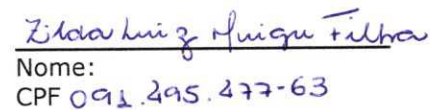 Zilda Luiz Muigu Filha
Nome:
CPF 091.495.477-63